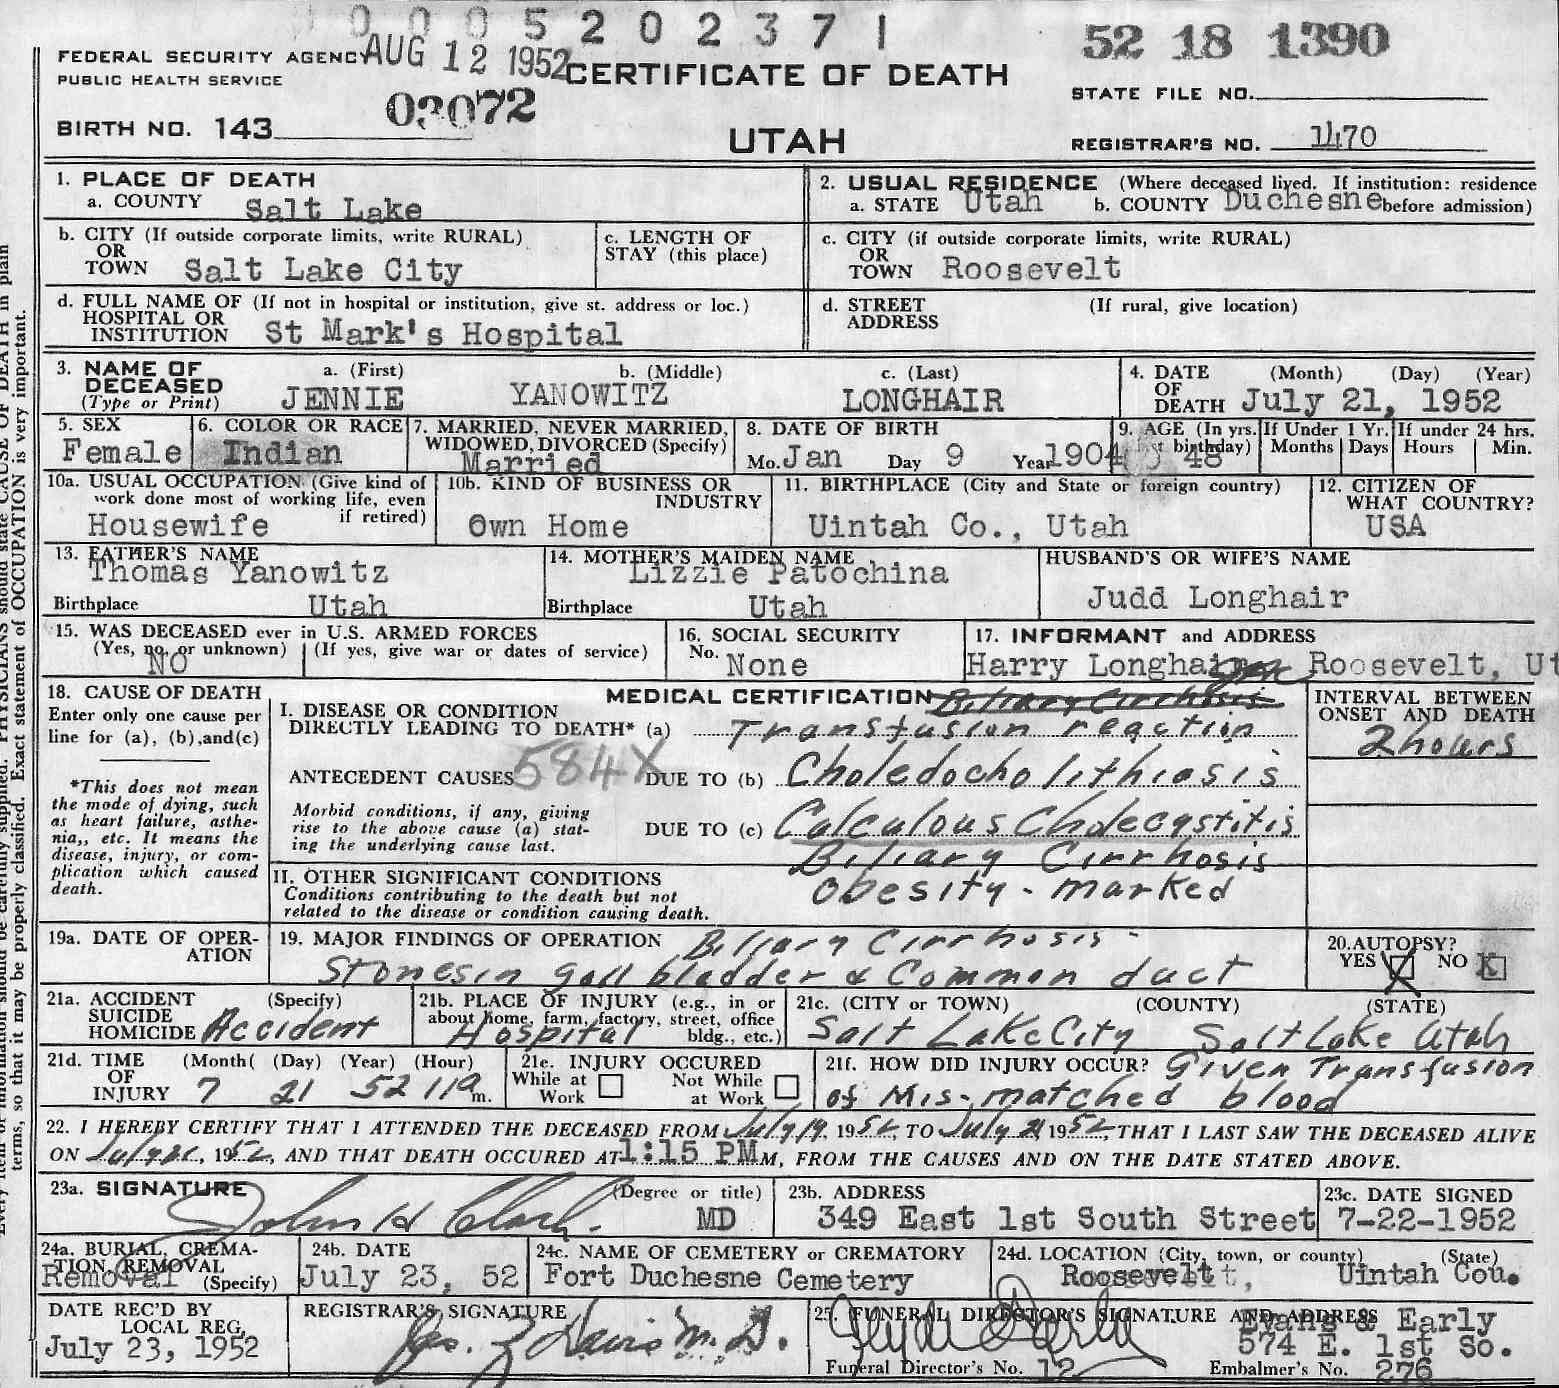 0 0 0 5 2 0 2 3 7 1
52 18 1390
FEDERAL SECURITY AGENCY AUG 12 1952 CERTIFICATE OF DEATH
PUBLIC HEALTH SERVICE
STATE FILE NO.
03072
BIRTH NO. 143
UTAH
REGISTRAR'S NO. 1470
1. PLACE OF DEATH
a. COUNTY Salt Lake
2. USUAL RESIDENCE (Where deceased lived. If institution: residence
a. STATE Utah b. COUNTY Duchesne before admission)
b. CITY (If outside corporate limits, write RURAL)
OR
TOWN Salt Lake City
c. LENGTH OF
STAY (this place)
c. CITY (if outside corporate limits, write RURAL)
OR
TOWN Roosevelt
d. FULL NAME OF (If not in hospital or institution, give st. address or loc.)
HOSPITAL OR
INSTITUTION St Mark's Hospital
d. STREET (If rural, give location)
ADDRESS
3. NAME OF DECEASED
(Type or Print)
a. (First) b. (Middle) c. (Last)
JENNIE YANOWITZ LONGHAIR
4. DATE (Month) (Day) (Year)
OF
DEATH July 21, 1952
5. SEX
Female
6. COLOR OR RACE
Indian
7. MARRIED, NEVER MARRIED,
WIDOWED, DIVORCED (Specify)
Married
8. DATE OF BIRTH
Mo. Jan Day 9 Year 1904
9. AGE (In yrs. last birthday) 48
If Under 1 Yr. Months Days
If under 24 hrs. Hours Min.
10a. USUAL OCCUPATION (Give kind of
work done most of working life, even
if retired)
Housewife
10b. KIND OF BUSINESS OR
INDUSTRY
Own Home
11. BIRTHPLACE (City and State or foreign country)
Uintah Co., Utah
12. CITIZEN OF
WHAT COUNTRY?
USA
13. FATHER'S NAME
Thomas Yanowitz
Birthplace Utah
14. MOTHER'S MAIDEN NAME
Lizzie Patochina
Birthplace Utah
HUSBAND'S OR WIFE'S NAME
Judd Longhair
15. WAS DECEASED ever in U.S. ARMED FORCES
(Yes, no, or unknown) (If yes, give war or dates of service)
NO
16. SOCIAL SECURITY
No. None
17. INFORMANT and ADDRESS
Harry Longhair Roosevelt, Ut
18. CAUSE OF DEATH
Enter only one cause per
line for (a), (b), and (c)
*This does not mean
the mode of dying, such
as heart failure, asthe-
nia,, etc. It means the
disease, injury, or com-
plication which caused
death.
MEDICAL CERTIFICATION Biliary Cirrhosis
I. DISEASE OR CONDITION
DIRECTLY LEADING TO DEATH* (a) Transfusion reaction
INTERVAL BETWEEN
ONSET AND DEATH
2 hours
ANTECEDENT CAUSES 584X DUE TO (b) Choledocholithiasis
Morbid conditions, if any, giving
rise to the above cause (a) stat-
ing the underlying cause last.
DUE TO (c) Calculous Cholecystitis
Biliary Cirrhosis
II. OTHER SIGNIFICANT CONDITIONS
Conditions contributing to the death but not
related to the disease or condition causing death.
Obesity - marked
19a. DATE OF OPER-
ATION
19. MAJOR FINDINGS OF OPERATION Biliary Cirrhosis -
Stones in gall bladder & Common duct
20. AUTOPSY?
YES X NO X
21a. ACCIDENT (Specify)
SUICIDE
HOMICIDE Accident
21b. PLACE OF INJURY (e.g., in or
about home, farm, factory, street, office
bldg., etc.)
Hospital
21c. (CITY or TOWN) (COUNTY) (STATE)
Salt Lake City Salt Lake Utah
21d. TIME (Month( (Day) (Year) (Hour)
OF
INJURY 7 21 52 11a m.
21e. INJURY OCCURED
While at Work Not While at Work
21f. HOW DID INJURY OCCUR? Given Transfusion
of Mis-matched blood
22. I HEREBY CERTIFY THAT I ATTENDED THE DECEASED FROM July 19, 1952, TO July 21 1952, THAT I LAST SAW THE DECEASED ALIVE
ON July 21, 1952, AND THAT DEATH OCCURED AT 1:15 PM M, FROM THE CAUSES AND ON THE DATE STATED ABOVE.
23a. SIGNATURE (Degree or title)
John H Clark. MD
23b. ADDRESS
349 East 1st South Street
23c. DATE SIGNED
7-22-1952
24a. BURIAL, CREMA-
TION, REMOVAL
(Specify)
Removal
24b. DATE
July 23, 52
24c. NAME OF CEMETERY or CREMATORY
Fort Duchesne Cemetery
24d. LOCATION (City, town, or county) (State)
Roosevelt, Uintah Cou.
DATE REC'D BY
LOCAL REG.
July 23, 1952
REGISTRAR'S SIGNATURE
Geo. Z Davis M.D.
25. FUNERAL DIRECTOR'S SIGNATURE AND ADDRESS
Evans & Early
574 E. 1st So.
Funeral Director's No. 12 Embalmer's No. 276
terms, so that it may be properly classified. Exact statement of OCCUPATION is very important.